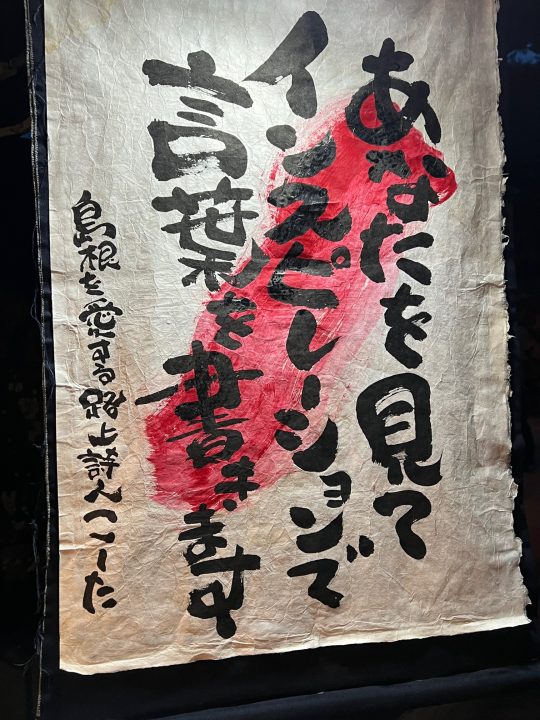 あなたを見て
インスピレーションで
言葉を書きます
島根を愛する路上詩人こーた